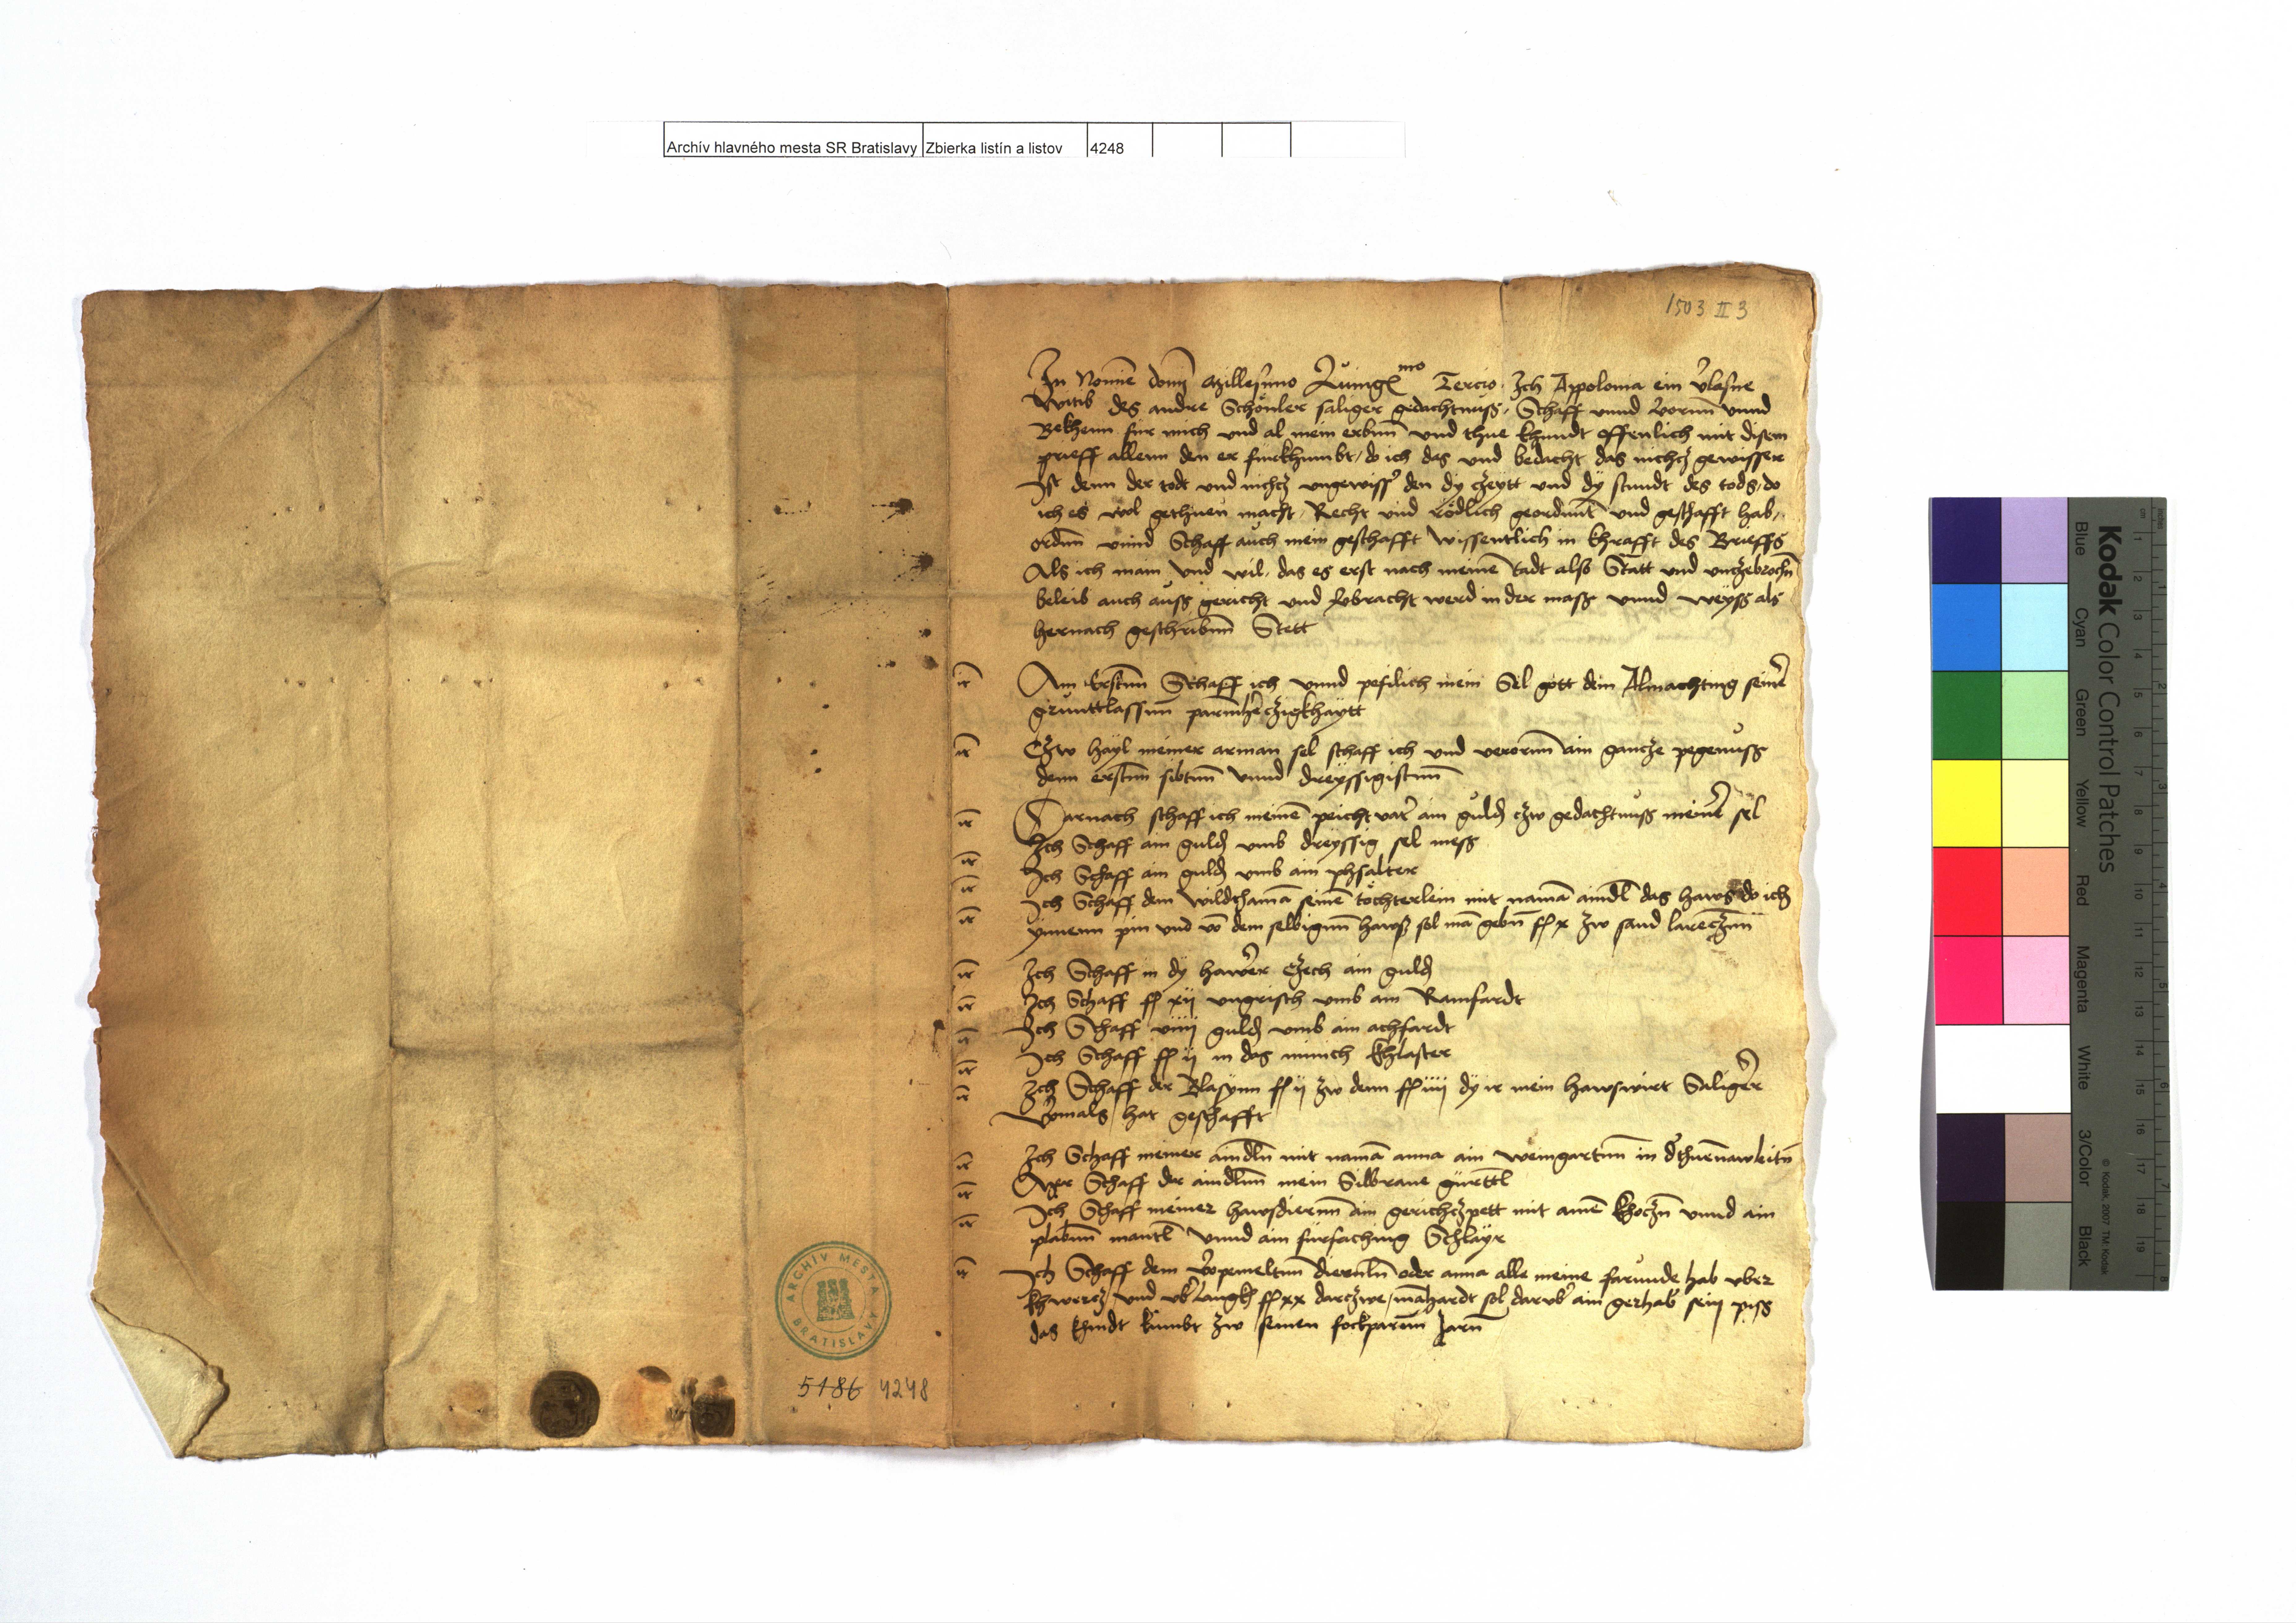 Archív hlavného mesta SR Bratislavy Zbierka listín a listov 4248
1503 II 3
In Nomine domii Millesimo Quingmo Tercio Ich Appolonia ein vlasne
Witib des andre Schönler saliger gedachtnuss, Schaff vnnd vorinn vnnd
Bekhenn fur mich vnd al mein erbnn vnd thue khundt offenlich mit disem
prieff allenn den er furkhumbt, do ich das vnd bedacht das nichcz gewisser
Ist denn der todt vnd nichcz vngewisser den dy czeytt vnd dÿ stundt des tods, do
ich es wol gethuen macht, Recht vnd rödlich geordnnt vnd geschafft hab,
ordnn vnnd Schaff auch mein geschafft wissentlich in khrafft des Brieffs
Als ich main vnd wil, das es erst nach meine tadt also Statt vnd vnczebrochn
beleib auch auss gericht vnd volbracht werd in der mass vnnd weyss als
hernach geschribnn Stett
Am Erstnn Schaff ich vnnd pefilich mein Sel gott dem Almachting seiner
grunttlassnn parmherczigkhaytt
Czw hayl meiner arman sel schaff ich vnd verornn ain gancze pegenuss
denn erstnn sibtnn vnnd dreyssigistnn
Darnach schaff ich meine peicht vatr ain guld czw gedachtnuss meiner sel
Ich Schaff ain guld vmb dreyssig sel mess
Ich Schaff ain guld vmb ain phsalter
Ich Schaff dem wildthama seine töchterlein mit nama aindl das haws do ich
ynnenn pin vnd vo dem selbignn hawss sol ma gebn fl x zw sand larencznn
Ich Schaff in dy hawer Czech ain guld
Ich Schaff fl xij vngrisch vmb ain Ramfardt
Ich Schaff viiij guld vmb ain achfardt
Ich Schaff fl ij in das minich khlaster
Ich Schaff der Blasynn fl ij zw denn fl iiij dy ir mein hawswirt Saliger
vormals hat geschafft
Ich Schaff meiner aindln mit nama anna ain weingartnn in der thurnawleitn
Mer Schaff der aindlnn mein Silbrane gürttl
Ich Schaff meiner hawsdiernn ain gerichczpett mit aine khoczn vnnd ain
plabnn mantl vnnd ain fürfaching Schlayr
Ich Schaff dem vorpemeltnn diernln oder anna alle meine farunde hab vber
khurcz vnd vber langk fl xx darczwe, mahardt sol darvber ain gerhab sein piss
das khindt kumbt zw seinen fockparnn Jarn
ARCHÍV MESTA BRATISLAVY
5186 4248
Kodak Color Control Patches
Blue Cyan Green Yellow Red Magenta White 3/Color Black
© Kodak, 2007 TM: Kodak
cm 1 2 3 4 5 6 7 8 9 10 11 12 13 14 15 16 17 18 19
inches 1 2 3 4 5 6 7 8